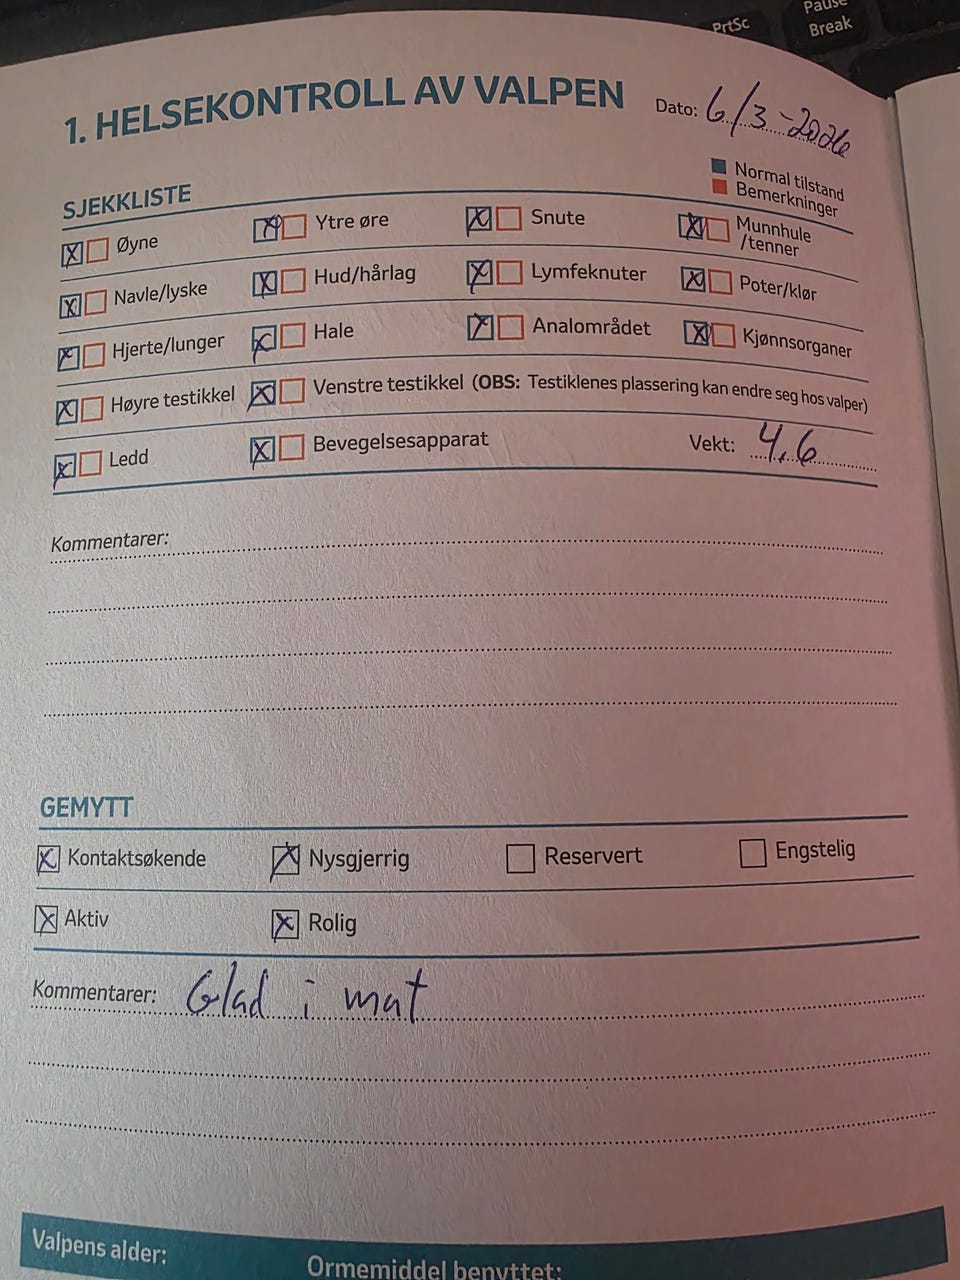 PrtSc
Pause
Break
1. HELSEKONTROLL AV VALPEN Dato: 6/3-2026
Normal tilstand
Bemerkninger
SJEKKLISTE
Øyne Ytre øre Snute Munnhule
/tenner
Navle/lyske Hud/hårlag Lymfeknuter Poter/klør
Hjerte/lunger Hale Analområdet Kjønnsorganer
Høyre testikkel Venstre testikkel (OBS: Testiklenes plassering kan endre seg hos valper)
Ledd Bevegelsesapparat Vekt: 4,6
Kommentarer:
GEMYTT
Kontaktsøkende Nysgjerrig Reservert Engstelig
Aktiv Rolig
Kommentarer: Glad i mat
Valpens alder: Ormemiddel benyttet: